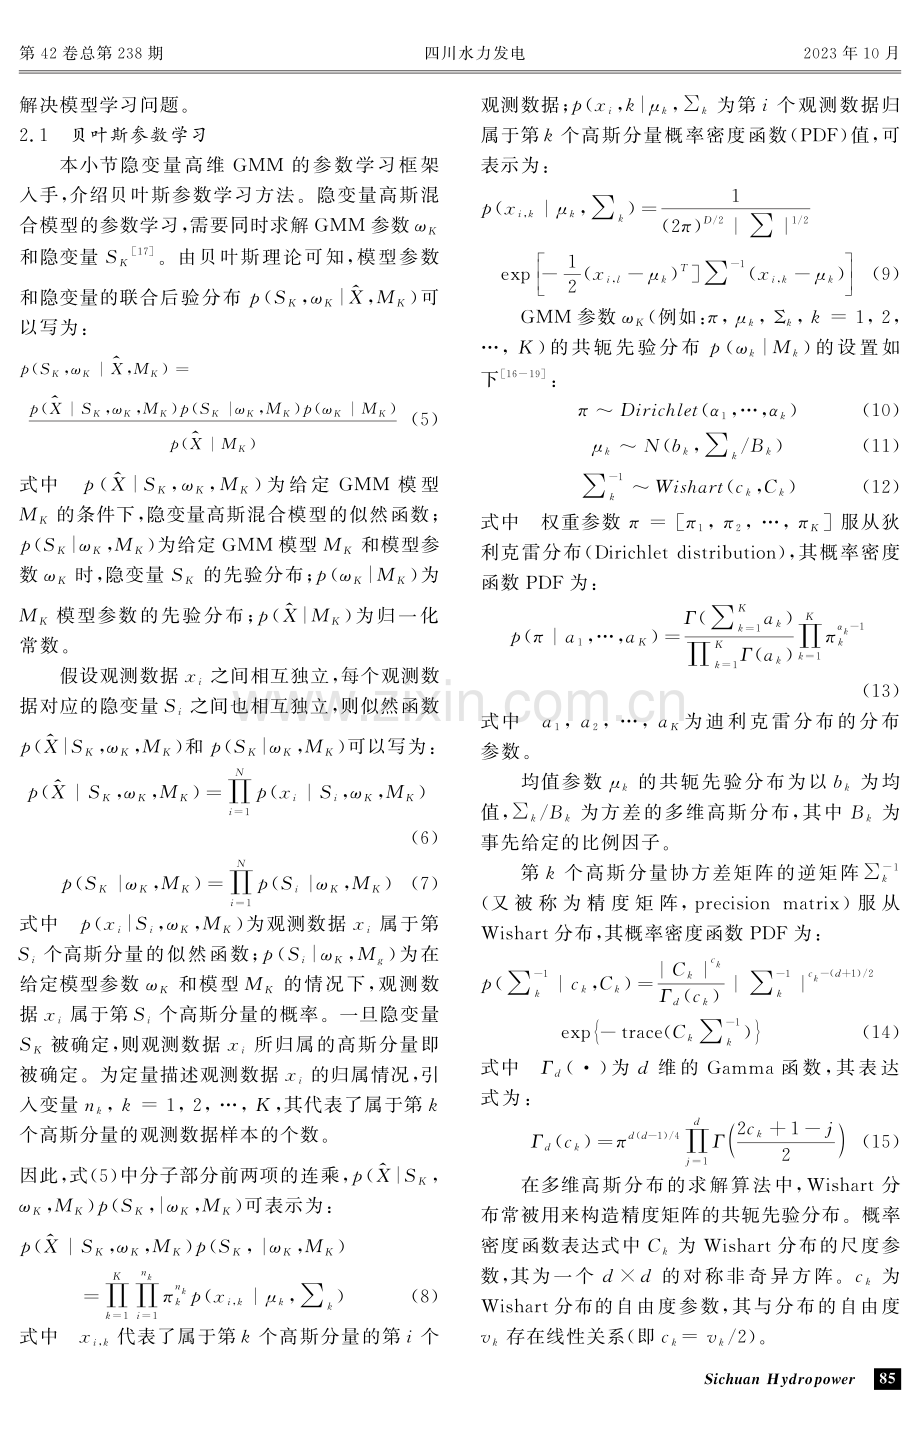 第 42 卷总第 238 期 四川水力发电 2023 年 10 月
解决模型学习问题。
2.1 贝叶斯参数学习
本小节隐变量高维 GMM 的参数学习框架
入手,介绍贝叶斯参数学习方法。隐变量高斯混
合模型的参数学习,需要同时求解 GMM 参数 ω_K
和隐变量 S_K^[17]。由贝叶斯理论可知,模型参数
和隐变量的联合后验分布 p(S_K,ω_K|X̂,M_K)可
以写为:
p(S_K,ω_K | X̂,M_K) =
p(X̂ | S_K,ω_K,M_K)p(S_K |ω_K,M_K)p(ω_K | M_K) (5)
p(X̂ | M_K)
式中 p(X̂|S_K,ω_K,M_K)为给定 GMM 模型
M_K 的条件下,隐变量高斯混合模型的似然函数;
p(S_K|ω_K,M_K)为给定 GMM 模型 M_K 和模型参
数 ω_K 时,隐变量 S_K 的先验分布;p(ω_K|M_K)为
M_K 模型参数的先验分布;p(X̂|M_K)为归一化
常数。
假设观测数据 x_i 之间相互独立,每个观测数
据对应的隐变量 S_i 之间也相互独立,则似然函数
p(X̂|S_K,ω_K,M_K)和 p(S_K|ω_K,M_K)可以写为:
p(X̂ | S_K,ω_K,M_K)=∏_{i=1}^{N} p(x_i | S_i,ω_K,M_K)
(6)
p(S_K |ω_K,M_K)=∏_{i=1}^{N} p(S_i |ω_K,M_K) (7)
式中 p(x_i|S_i,ω_K,M_K)为观测数据 x_i 属于第
S_i 个高斯分量的似然函数;p(S_i|ω_K,M_g)为在
给定模型参数 ω_K 和模型 M_K 的情况下,观测数
据 x_i 属于第 S_i 个高斯分量的概率。一旦隐变量
S_K 被确定,则观测数据 x_i 所归属的高斯分量即
被确定。为定量描述观测数据 x_i 的归属情况,引
入变量 n_k, k = 1, 2, …, K,其代表了属于第 k
个高斯分量的观测数据样本的个数。
因此,式(5)中分子部分前两项的连乘,p(X̂|S_K,
ω_K,M_K)p(S_K,|ω_K,M_K)可表示为:
p(X̂ | S_K,ω_K,M_K)p(S_K, |ω_K,M_K)
=∏_{k=1}^{K} ∏_{i=1}^{n_k} π_k^{n_k} p(x_{i,k} | μ_k,∑_k) (8)
式中 x_{i,k} 代表了属于第 k 个高斯分量的第 i 个
观测数据;p(x_i,k|μ_k,∑_k 为第 i 个观测数据归
属于第 k 个高斯分量概率密度函数(PDF)值,可
表示为:
p(x_{i,k} | μ_k,∑_k)= 1 / ((2π)^{D/2} | ∑ |^{1/2})
exp[-1/2(x_{i,l} - μ_k)^T]∑^{-1}(x_{i,k} - μ_k)] (9)
GMM 参数 ω_K(例如:π, μ_k, Σ_k, k = 1, 2,
…, K)的共轭先验分布 p(ω_k|M_k)的设置如
下^[16-19]:
π ~ Dirichlet(α_1,…,α_k) (10)
μ_k ~ N(b_k,∑_k/B_k) (11)
∑_k^{-1} ~ Wishart(c_k,C_k) (12)
式中 权重参数 π = [π_1, π_2, …, π_K] 服从狄
利克雷分布(Dirichlet distribution),其概率密度
函数 PDF 为:
p(π | a_1,…,a_K)= Γ(∑_{k=1}^{K} a_k) / ∏_{k=1}^{K} Γ(a_k) ∏_{k=1}^{K} π_k^{a_k-1}
(13)
式中 a_1, a_2, …, a_K 为迪利克雷分布的分布
参数。
均值参数 μ_k 的共轭先验分布为以 b_k 为均
值,∑_k/B_k 为方差的多维高斯分布,其中 B_k 为
事先给定的比例因子。
第 k 个高斯分量协方差矩阵的逆矩阵 ∑_k^{-1}
(又被称为精度矩阵, precision matrix)服从
Wishart 分布,其概率密度函数 PDF 为:
p(∑_k^{-1} | c_k,C_k)= | C_k |^{c_k} / Γ_d(c_k) | ∑_k^{-1} |^{c_k-(d+1)/2}
exp{-trace(C_k∑_k^{-1})} (14)
式中 Γ_d(·)为 d 维的 Gamma 函数,其表达
式为:
Γ_d(c_k)=π^{d(d-1)/4} ∏_{j=1}^{d} Γ((2c_k+1-j)/2) (15)
在多维高斯分布的求解算法中,Wishart 分
布常被用来构造精度矩阵的共轭先验分布。概率
密度函数表达式中 C_k 为 Wishart 分布的尺度参
数,其为一个 d×d 的对称非奇异方阵。c_k 为
Wishart 分布的自由度参数,其与分布的自由度
v_k 存在线性关系(即 c_k= v_k/2)。
www.zixin.com.cn
Sichuan Hydropower 85